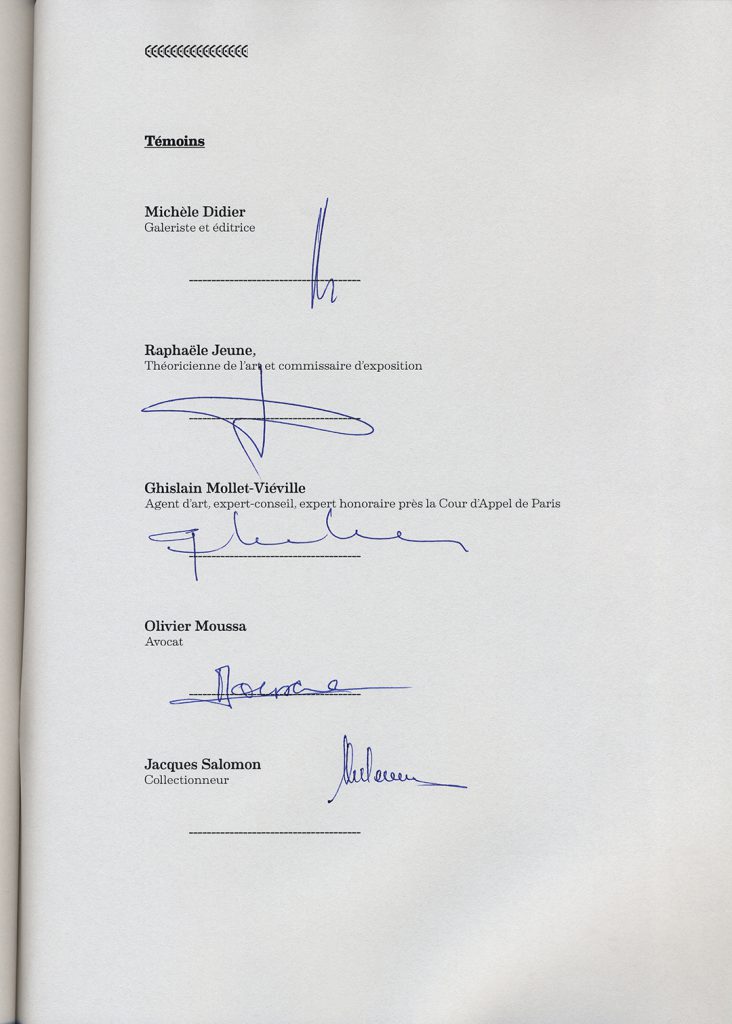 Témoins
Michèle Didier
Galeriste et éditrice
Raphaële Jeune,
Théoricienne de l'art et commissaire d'exposition
Ghislain Mollet-Viéville
Agent d'art, expert-conseil, expert honoraire près la Cour d'Appel de Paris
Olivier Moussa
Avocat
Jacques Salomon
Collectionneur